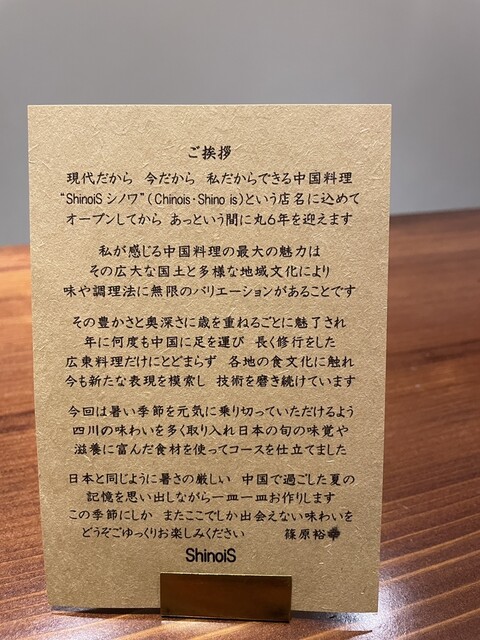 ご挨拶
現代だから 今だから 私だからできる中国料理
“ShinoiS シノワ”(Chinois・Shino is)という店名に込めて
オープンしてから あっという間に丸6年を迎えます
私が感じる中国料理の最大の魅力は
その広大な国土と多様な地域文化により
味や調理法に無限のバリエーションがあることです
その豊かさと奥深さに歳を重ねるごとに魅了され
年に何度も中国に足を運び 長く修行をした
広東料理だけにとどまらず 各地の食文化に触れ
今も新たな表現を模索し 技術を磨き続けています
今回は暑い季節を元気に乗り切っていただけるよう
四川の味わいを多く取り入れ日本の旬の味覚や
滋養に富んだ食材を使ってコースを仕立てました
日本と同じように暑さの厳しい 中国で過ごした夏の
記憶を思い出しながら一皿一皿お作りします
この季節にしか またここでしか出会えない味わいを
どうぞごゆっくりお楽しみください 篠原裕
ShinoiS